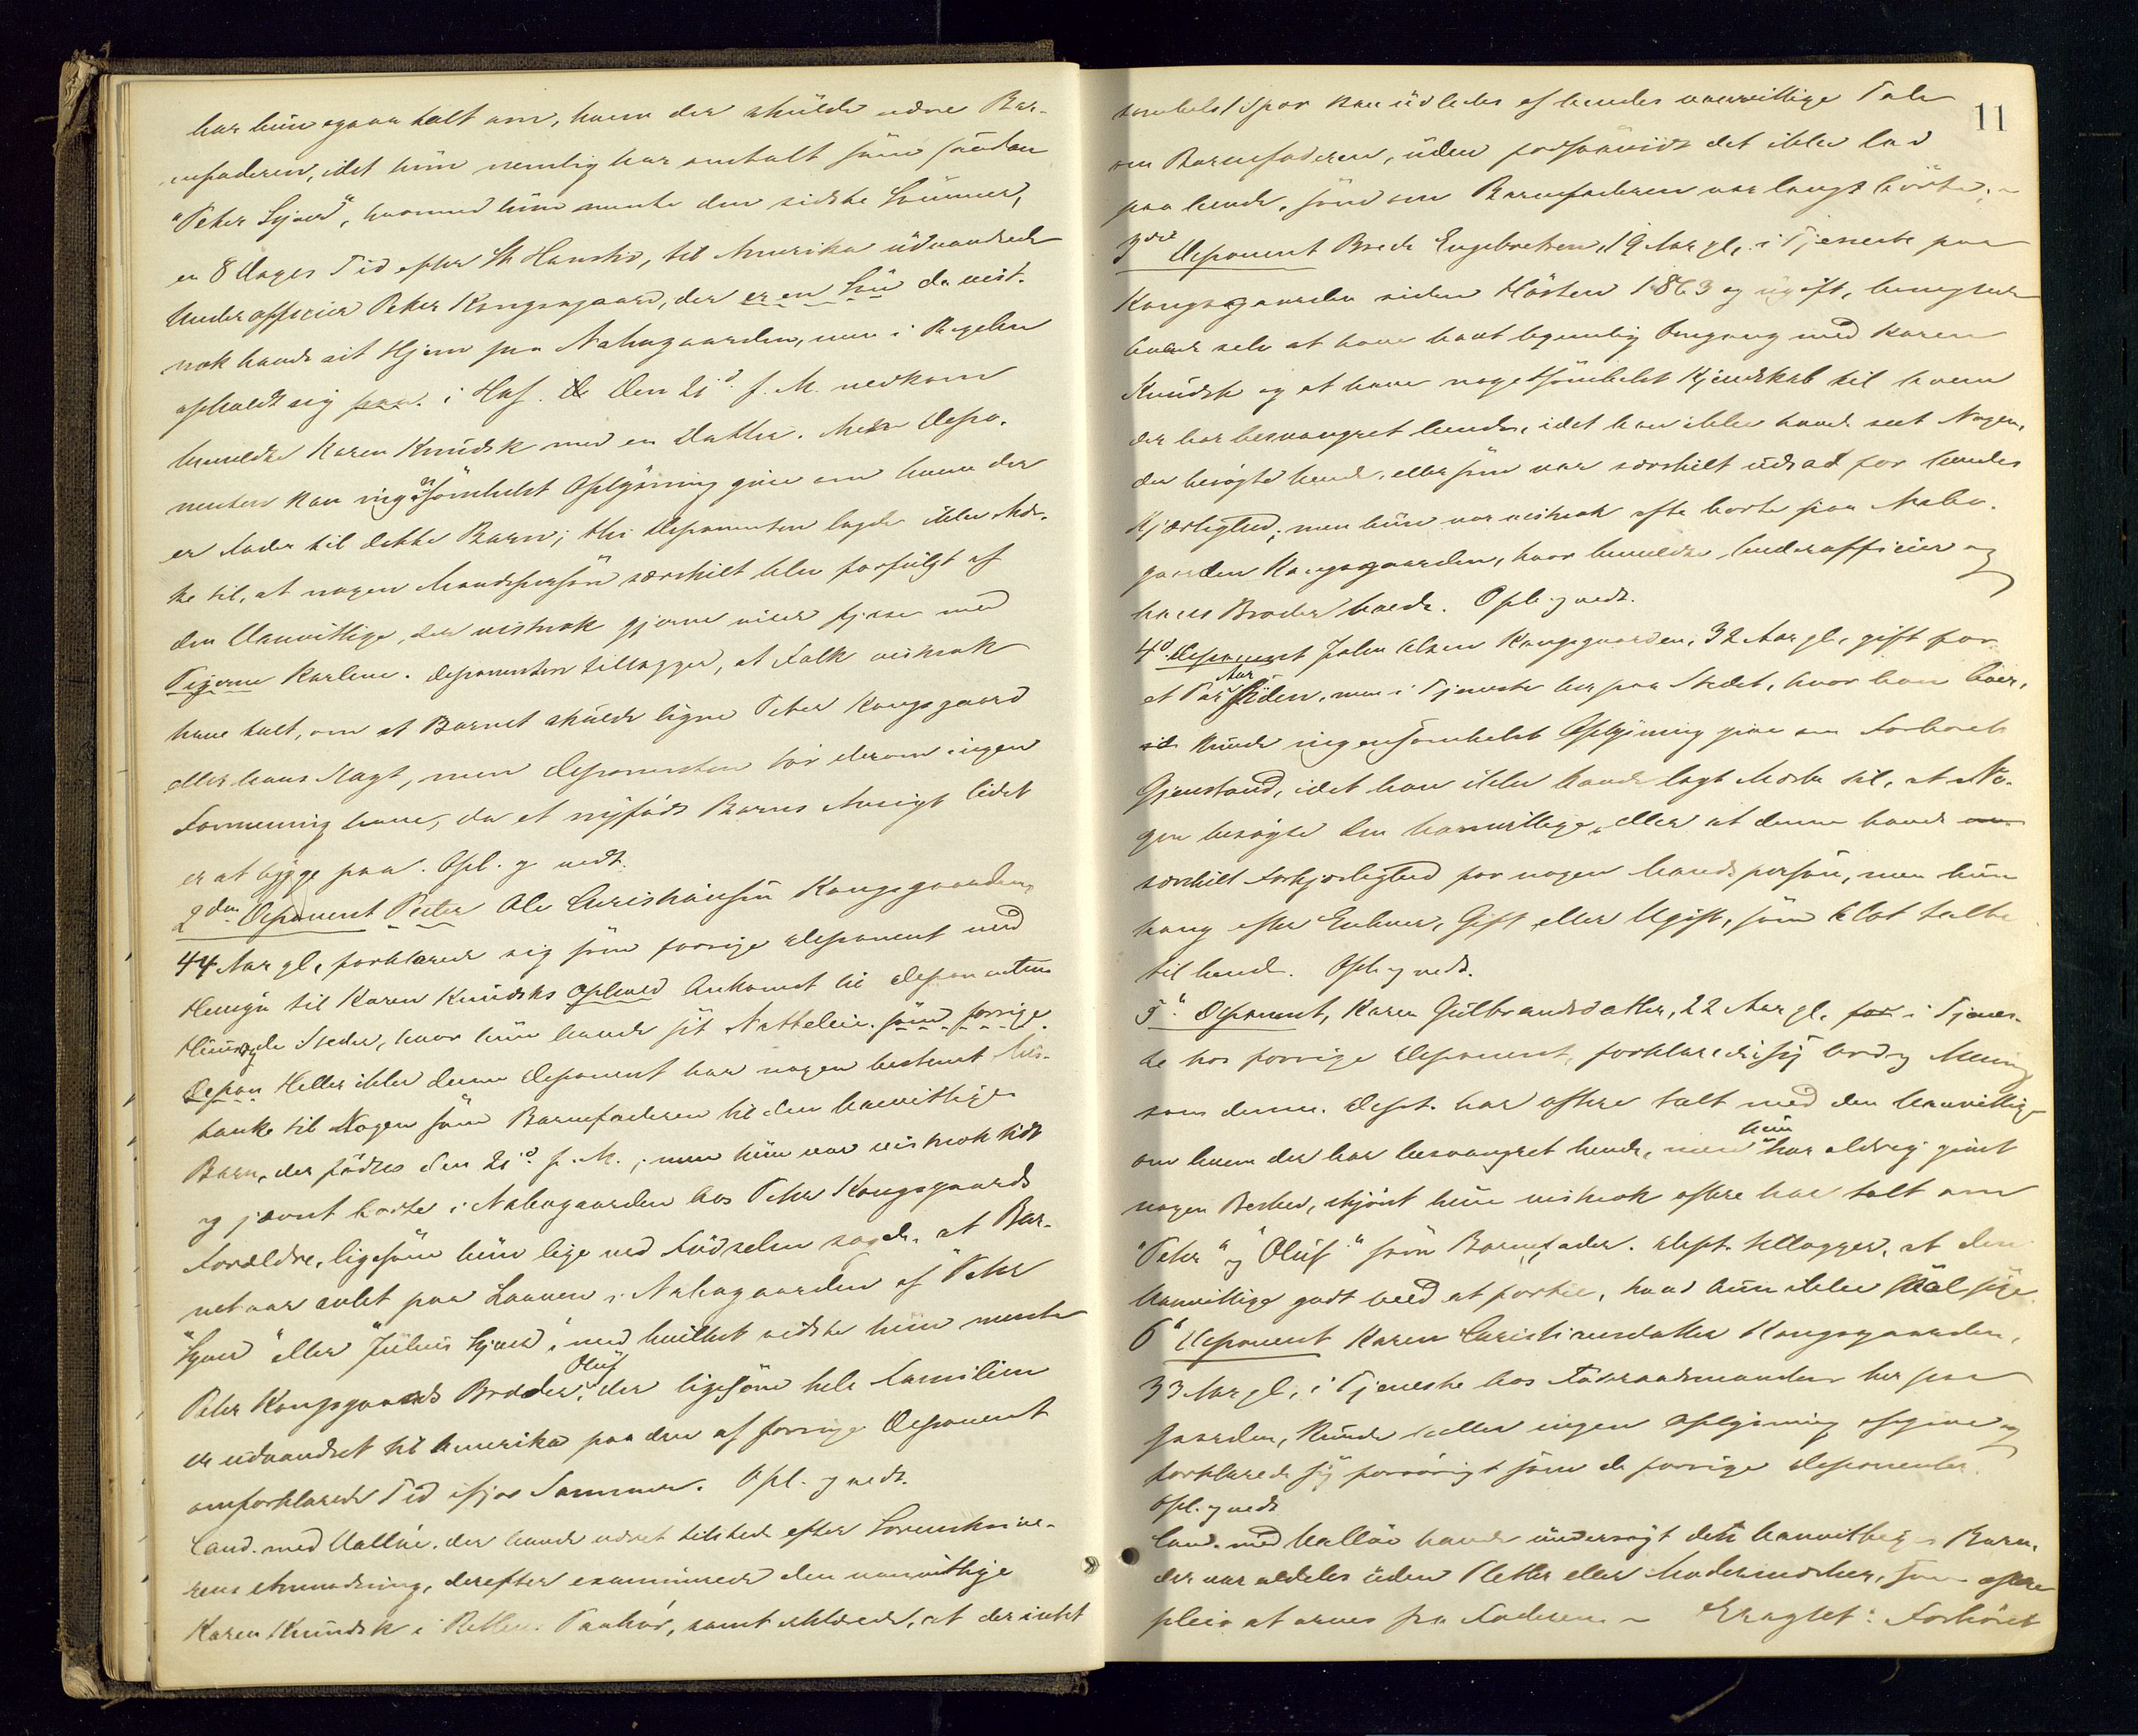 har hun ogsaa talt om, hvem der skulde være Bar-
nefaderen, idet hun nemlig har omtalt som saadan
"Peter Sjoer", hvormed hun mente den sidste Sommer,
en 8 Dages Tid efter St Hanstid, til Amerika udvandrede
Underofficier Peter Kongsgaard, der er en Sø da vist-
nok havde sit Hjem paa Nabogaarden, men i Regelen
opholdt sig paa i Hof. De Den 21d. f. M. nedkom
bemeldte Karen Knudsk med en Datter. Men Depo-
nenten kan ingensomhelst Oplysning give om hvem der
er Fader til dette Barn; thi Deponenten lagde ikke Mær-
ke til, at nogen Mandsperson særskilt blev forfulgt af
den Vanvittige, der vistnok gjerne vilde fjase med
Pigerne Karlene. Deponenten tillægger, at Folk vistnok
have talt, om at Barnet skulde ligne Peter Kongsgaard
eller hans Slægt, men Deponenten tør derom ingen
Formening have, da et nyfødt Barns Ansigt lidet
er at bygge paa. Opl. og vedt.
2den Deponent Peter Ole Christiansen Kongsgaarden,
44 Aar gl, forklarede sig som forrige Deponent med
Hensyn til Karen Knudsks Ophold Ankomst til Deponentens
Huus og de Steder, hvor hun havde sit Natteleie. som forrige
Depon Heller ikke denne Deponent har nogen bestemt Mis-
tanke til Nogen som Barnefaderen til den Vanvittiges
Barn, der fødtes den 21d. f. M.; men hun var vistnok tidt
og jævnt borte i Nabogaarden hos Peter Kongsgaards
Forældre, ligesom hun lige ved Fødselen sagde, at Bar-
net var avlet paa Laaven i Nabogaarden af "Peter
Sjoer" eller "Julius Sjoer", med hvilket sidste hun mente
Peter Kongsgaards Broder, Oluf der ligesom hele Familien
er udvandret til Amerika paa den af forrige Deponent
omforklarede Tid ifjor Sommer. Opl. og vedt.
Cand. med Valløe, der havde været tilstede efter Sorenskrive-
rens Anmodning, derefter examinerede den vanvittige
Karen Knudsk i Rettens Paahør, samt erklærede, at der intet
11
somhelst Spor kan udledes af hendes vanvittige Tale
om Barnefaderen, uden forsaavidt det ikke lod
paa hende, som om Barnefaderen var langt borte. ~
3die Deponent Brede Engebretsen, 19 Aar gl, i Tjeneste paa
Kongsgaarden siden Høsten 1863 og ugift, benegtede
baade selv at have havt legemlig Omgang med Karen
Knudsk og at have nogetsomhelst Kjendskab til hvem
der har besvangret hende, idet han ikke havde seet Nogen,
der besøgte hende, eller som var særskilt udsat for hendes
Kjærlighed; men hun var vistnok ofte borte paa Nabo-
gaarden Kongsgaarden, hvor bemeldte Underofficier og
hans Broder havde. Opl. og vedt.
4d Deponent Johan Olsen Kongsgaarden, 32 Aar gl, gift for
et Par Aar siden, men i Tjeneste her paa Stedet, hvor han boer,
 kunde ingensomhelst Oplysning give om Forhørets
Gjenstand, idet han ikke havde lagt Mærke til, at No-
gen besøgte den Vanvittige, eller at denne havde
særskilt Forkjærlighed for nogen Mandsperson, men hun
hang efter Enhver, Gift eller Ugift, som blot talte
til hende. Opl. og vedt.
5" Deponent, Karen Gulbrandsdatter, 22 Aar gl, for i Tjenes-
te hos forrige Deponent, forklarede sig Ord og Mening
som denne. Dept. har oftere talt med den Vanvittige
om hvem der har besvangret hende, men hun har aldrig givet
nogen Besked, skjønt hun vistnok oftere har talt om
"Peter" og "Oluf" som Barnefader. Dept. tillægger, at den
Vanvittige godt veed at fortie, hvad hun ikke skal sige.
6" Deponent Karen Christiansdatter Kongsgaarden,
33 Aar gl, i Tjeneste hos Føderaadsmanden her paa
Gaarden, kunde heller ingen Oplysning afgive og
forklarede sig forøvrigt som de forrige Deponenter.
Opl. og vedt.
Cand. med Valløe havde undersøgt den Vanvittiges Barn,
der var aldeles uden Pletter eller Modermærker, som oftere
pleie at arves fra Faderen. ~ Eragtet: Forhøret